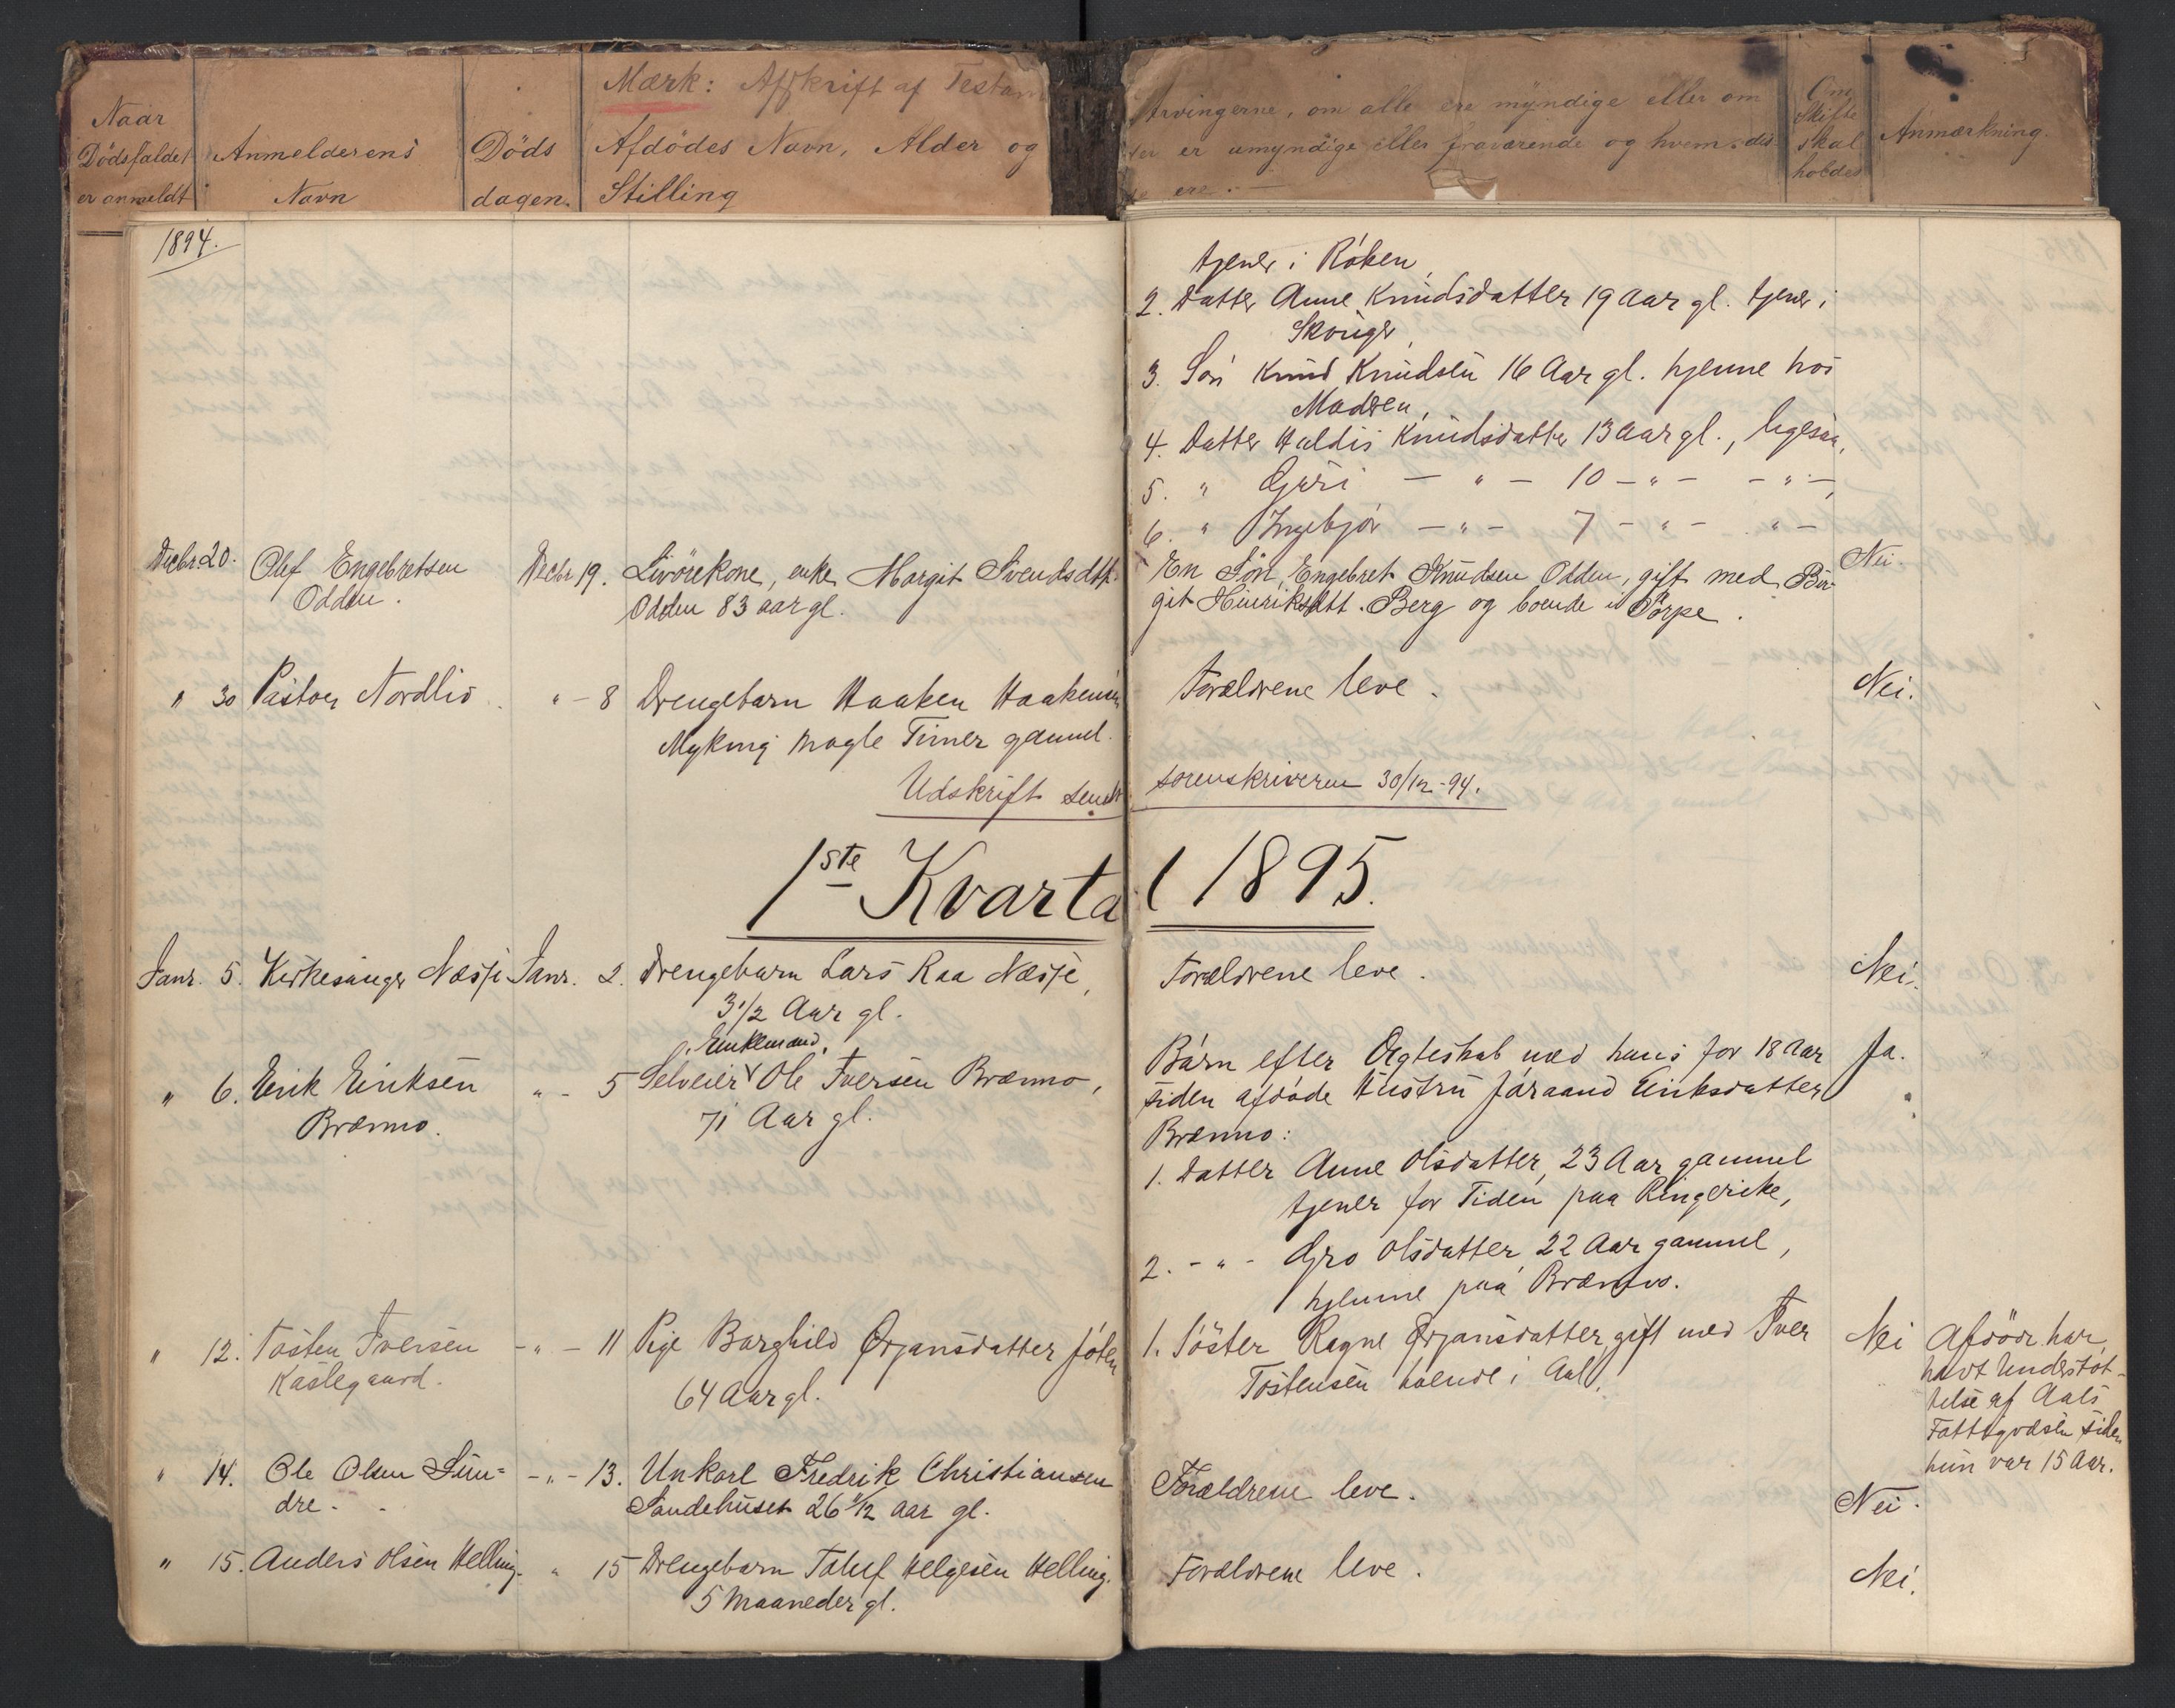 Mærk: Afskrift af Testam
Naar
Dødsfaldet
er anmeldt
Anmelderens
Navn
Døds
dagen.
Afdødes Navn, Alder og
Stilling
Arvingerne, om alle ere myndige eller om
er umyndige eller fraværende og hvem
ere.
Om
Skifte
skal
holdes
Anmærkning.
1894.
tjener i Røken,
2. Datter Anne Knudsdatter 19 Aar gl. tjener i
Skouger,
3. Søn Knud Knudsen 16 Aar gl. hjemme hos
Madsen,
4. Datter Haldis Knudsdatter 13 Aar gl., ligesaa,
5. " Guri — " — 10 — " — — " —,
6. " Ingebjør — " — 7 — " — " —
Decbr. 20. Olef Engebretsen
Odden.
Decbr 19. Livörekone, enke Margit Svendsdtt.
Odden 83 aar gl.
En Søn, Engebret Knudsen Odden, gift med Bir-
git Hinriksdtt. Berg og boende i Torpe.
Nei.
" 30 Pastor Nordlid " - 8 Drengebarn Haaken Haakensen
Myking nogle Timer gammel.
Forældrene leve.
Nei.
Udskrift sendt sorenskriveren 30/12-94.
1ste Kvartal 1895.
Janr. 5. Kirkesanger Næsje Janr. 2. Drengebarn Lars Raa Næsje,
3 1/2 Aar gl.
Forældrene leve.
Nei.
" 6. Eirik Eiriksen
Brænno.
" - 5 Selveier Ole Iversen Brænno,
Enkemand,
71 Aar gl.
Børn efter Ægteskab med hans for 18 Aar
siden afdøde Hustru Jøraand Eiriksdatter
Brænno:
Ja.
1. Datter Anne Olsdatter, 23 Aar gammel
tjener for Tiden paa Ringerike,
2. - " - Gro Olsdatter, 22 Aar gammel,
hjemme paa Brænno.
" 12. Tosten Iversen
Kaslegaard.
- " - 11 Pige Barghild Ørjansdatter Jøten
64 Aar gl.
1. Söster Ragne Ørjansdatter, gift med Iver
Tostensen boende i Aal.
Nei
Afdøde har
havt Understøt-
telse af Aals
Fattigvæsen siden
hun var 15 Aar.
" 14. Ole Olsen Sun=
dre.
- " - 13. Unkarl Fredrik Christiansen
Sandehuset 26 1/12 aar gl.
Forældrene leve.
Nei.
" 15. Anders Olsen Helling. " 15 Drengebarn Toluf Helgesen Helling.
5 Maaneder gl.
Forældrene leve.
Nei.